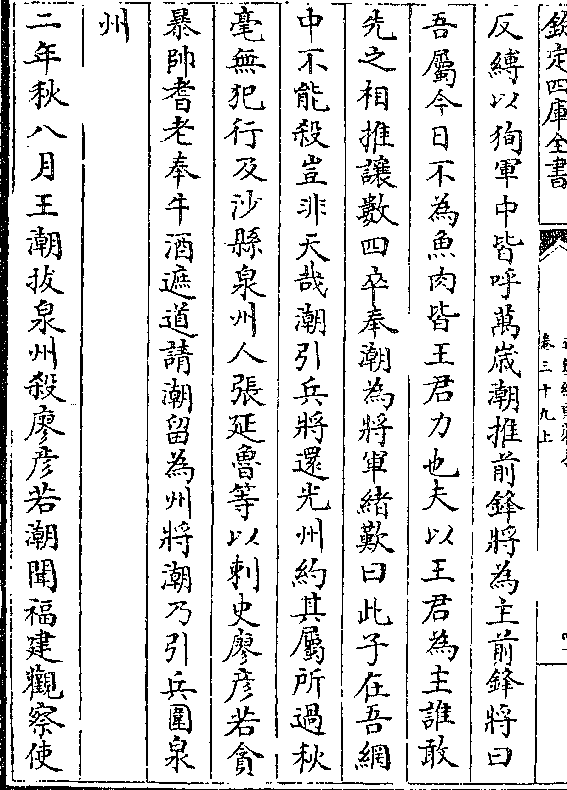 欽定四庫全書
卷三十九上
反縛以狥軍中皆呼萬歳潮推前鋒將為主前鋒將曰
吾屬今日不為魚肉皆王君力也夫以王君為主誰敢
先之相推讓數四卒奉潮為將軍緒歎曰此子在吾網
中不能殺豈非天哉潮引兵將還光州約其屬所過秋
毫無犯行及沙縣泉州人張延魯等以刺史廖彦若貪
暴帥耆老奉牛酒遮道請潮留為州將潮乃引兵圍泉
州
二年秋八月王潮拔泉州殺廖彦若潮聞福建觀察使